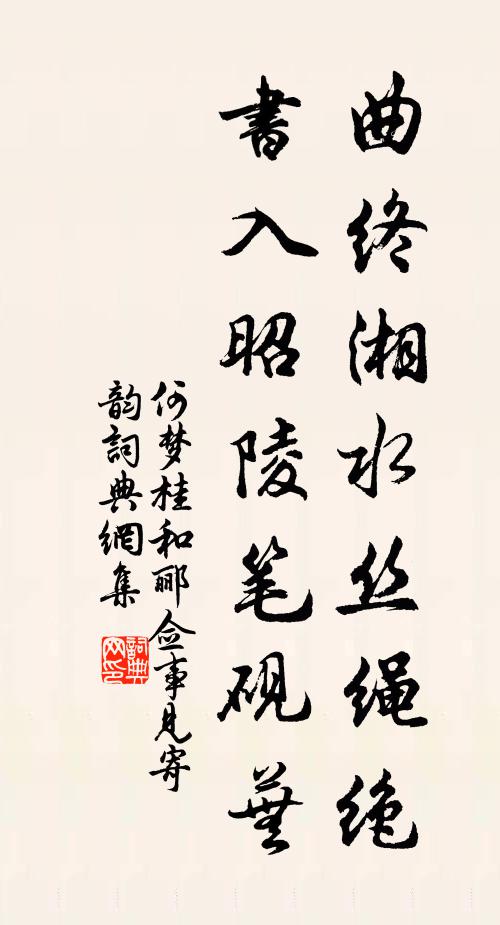 曲终湘水丝绳绝
書入昭陵笔砚蕪
何梦桂和郦佥事見寄
韵詞典網集
詞典网印